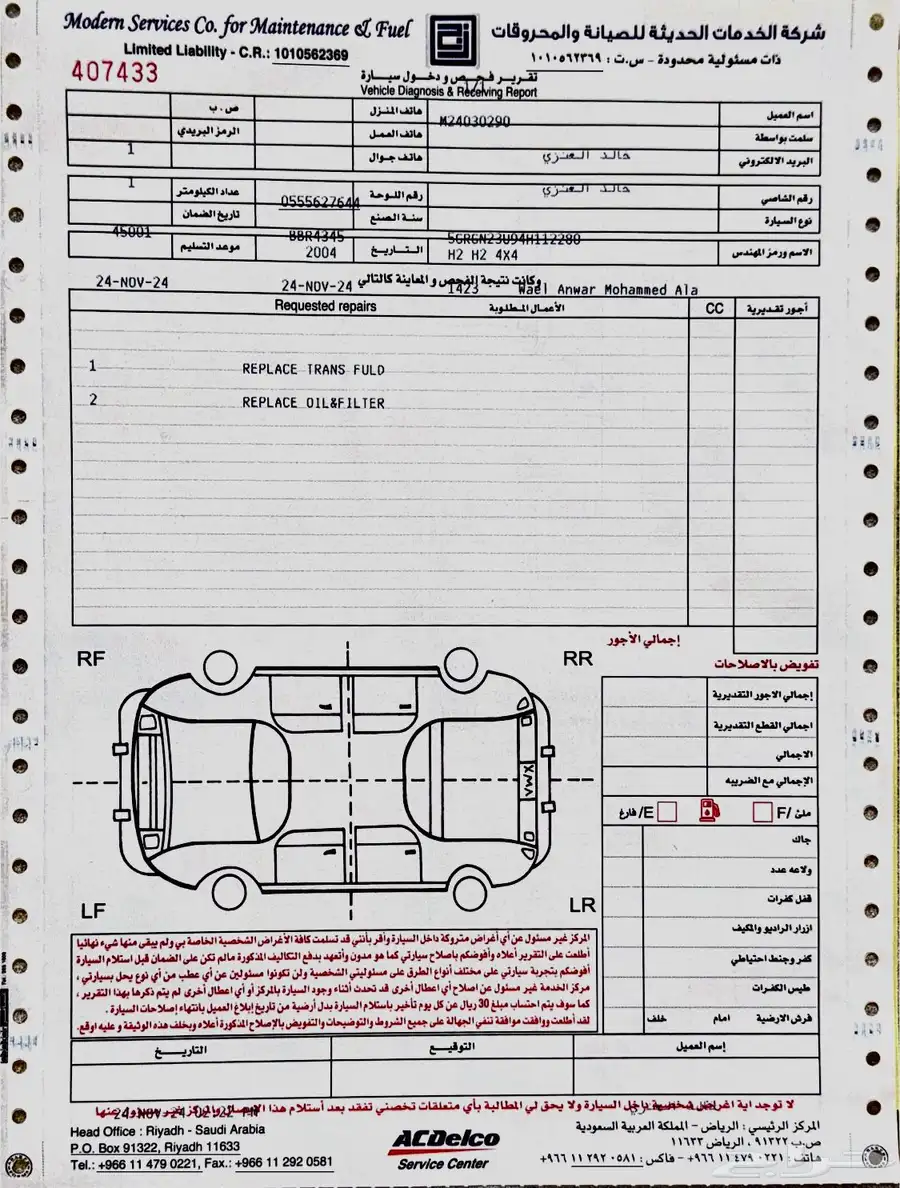 Modern Services Co. for Maintenance & Fuel
شركة الخدمات الحديثة للصيانة والمحروقات
Limited Liability - C.R.: 1010562369
ذات مسئولية محدودة - س.ت : ١٠١٠٥٦٢٣٦٩
407433
تقرير فحص و دخول سيارة
Vehicle Diagnosis & Receiving Report
1/1
اسم العميل
M24030290
هاتف المنزل
ص.ب
سلمت بواسطة
هاتف العمل
الرمز البريدي
البريد الالكتروني
خالد العنزي
هاتف جوال
1
رقم الشاصي
خالد العنزي
رقم اللوحة
0555627644
عداد الكيلومتر
1
نوع السيارة
سنة الصنع
تاريخ الضمان
الاسم ورمز المهندس
5GRGN23U94H112280
H2 H2 4X4
التاريخ
BBR4345
2004
موعد التسليم
45001
وكانت نتيجة الفحص و المعاينة كالتالي
24-NOV-24
24-NOV-24
1423
Wael Anwar Mohammed Ala
Requested repairs
الأعمال المطلوبة
CC
أجور تقديرية
1 REPLACE TRANS FULD
2 REPLACE OIL&FILTER
إجمالي الأجور
RF
RR
LF
LR
تفويض بالاصلاحات
إجمالي الاجور التقديرية
اجمالي القطع التقديرية
الاجمالي
الإجمالي مع الضريبه
ملئ /F
E/ فارغ
جاك
ولاعه عدد
قفل كفرات
ازرار الراديو والمكيف
كفر وجنط احتياطي
طيس الكفرات
فرش الارضية
امام
خلف
المركز غير مسئول عن أي أغراض متروكة داخل السيارة وأقر بأنني قد تسلمت كافة الأغراض الشخصية الخاصة بي ولم يبقى منها شيء نهائيا
أطلعت على التقرير أعلاه وأفوضكم باصلاح سيارتي كما هو مدون وأتعهد بدفع التكاليف المذكورة مالم تكن على الضمان قبل استلام السيارة
أفوضكم بتجربة سيارتي على مختلف أنواع الطرق على مسئوليتي الشخصية ولن تكونوا مسئولين عن أي عطب من أي نوع يحل بسيارتي ،
مركز الخدمة غير مسئول عن اصلاح أي اعطال أخرى قد تحدث أثناء وجود السيارة بالمركز أو أي اعطال أخرى لم يتم ذكرها بهذا التقرير ،
كما سوف يتم احتساب مبلغ 30 ريال عن كل يوم تأخير باستلام السيارة بدل أرضية من تاريخ إبلاغ العميل بانتهاء إصلاحات السيارة .
لقد أطلعت ووافقت موافقة تنفي الجهالة على جميع الشروط والتوضيحات والتفويض بالإصلاح المذكورة أعلاه وبخلف هذه الوثيقة و عليه اوقع.
إسم العميل
التوقيع
التاريخ
لا توجد اية اغراض شخصية داخل السيارة ولا يحق لي المطالبة بأي متعلقات تخصني تفقد بعد أستلام هذا الايصال والمركز غير مسئول عنها
24-NOV-24 02:22 PM
Head Office : Riyadh - Saudi Arabia
P.O. Box 91322, Riyadh 11633
Tel.: +966 11 479 0221, Fax.: +966 11 292 0581
ACDelco
Service Center
المركز الرئيسي : الرياض - المملكة العربية السعودية
ص.ب ٩١٣٢٢ ، الرياض ١١٦٣٣
هاتف : ٠٢٢١ ٤٧٩ ١١ ٩٦٦+ - فاكس : ٠٥٨١ ٢٩٢ ١١ ٩٦٦+
حراج